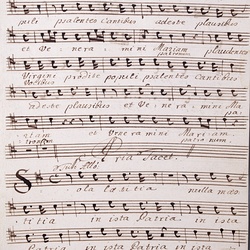 puli psalentes Cantibus adeste plausibus
et Venera mini Mariam plaudentes
patronum
Virgine prodite populi psalentes Cantibus
adeste plausibus et Venera mini Ma
pa
riam et Venera mini Mariam
tronum patronum
Aria Tacet
a Solo Alto
Sola laetitia nulla moe
titia in ista Patria in ista
Patria in ista Patria in ista